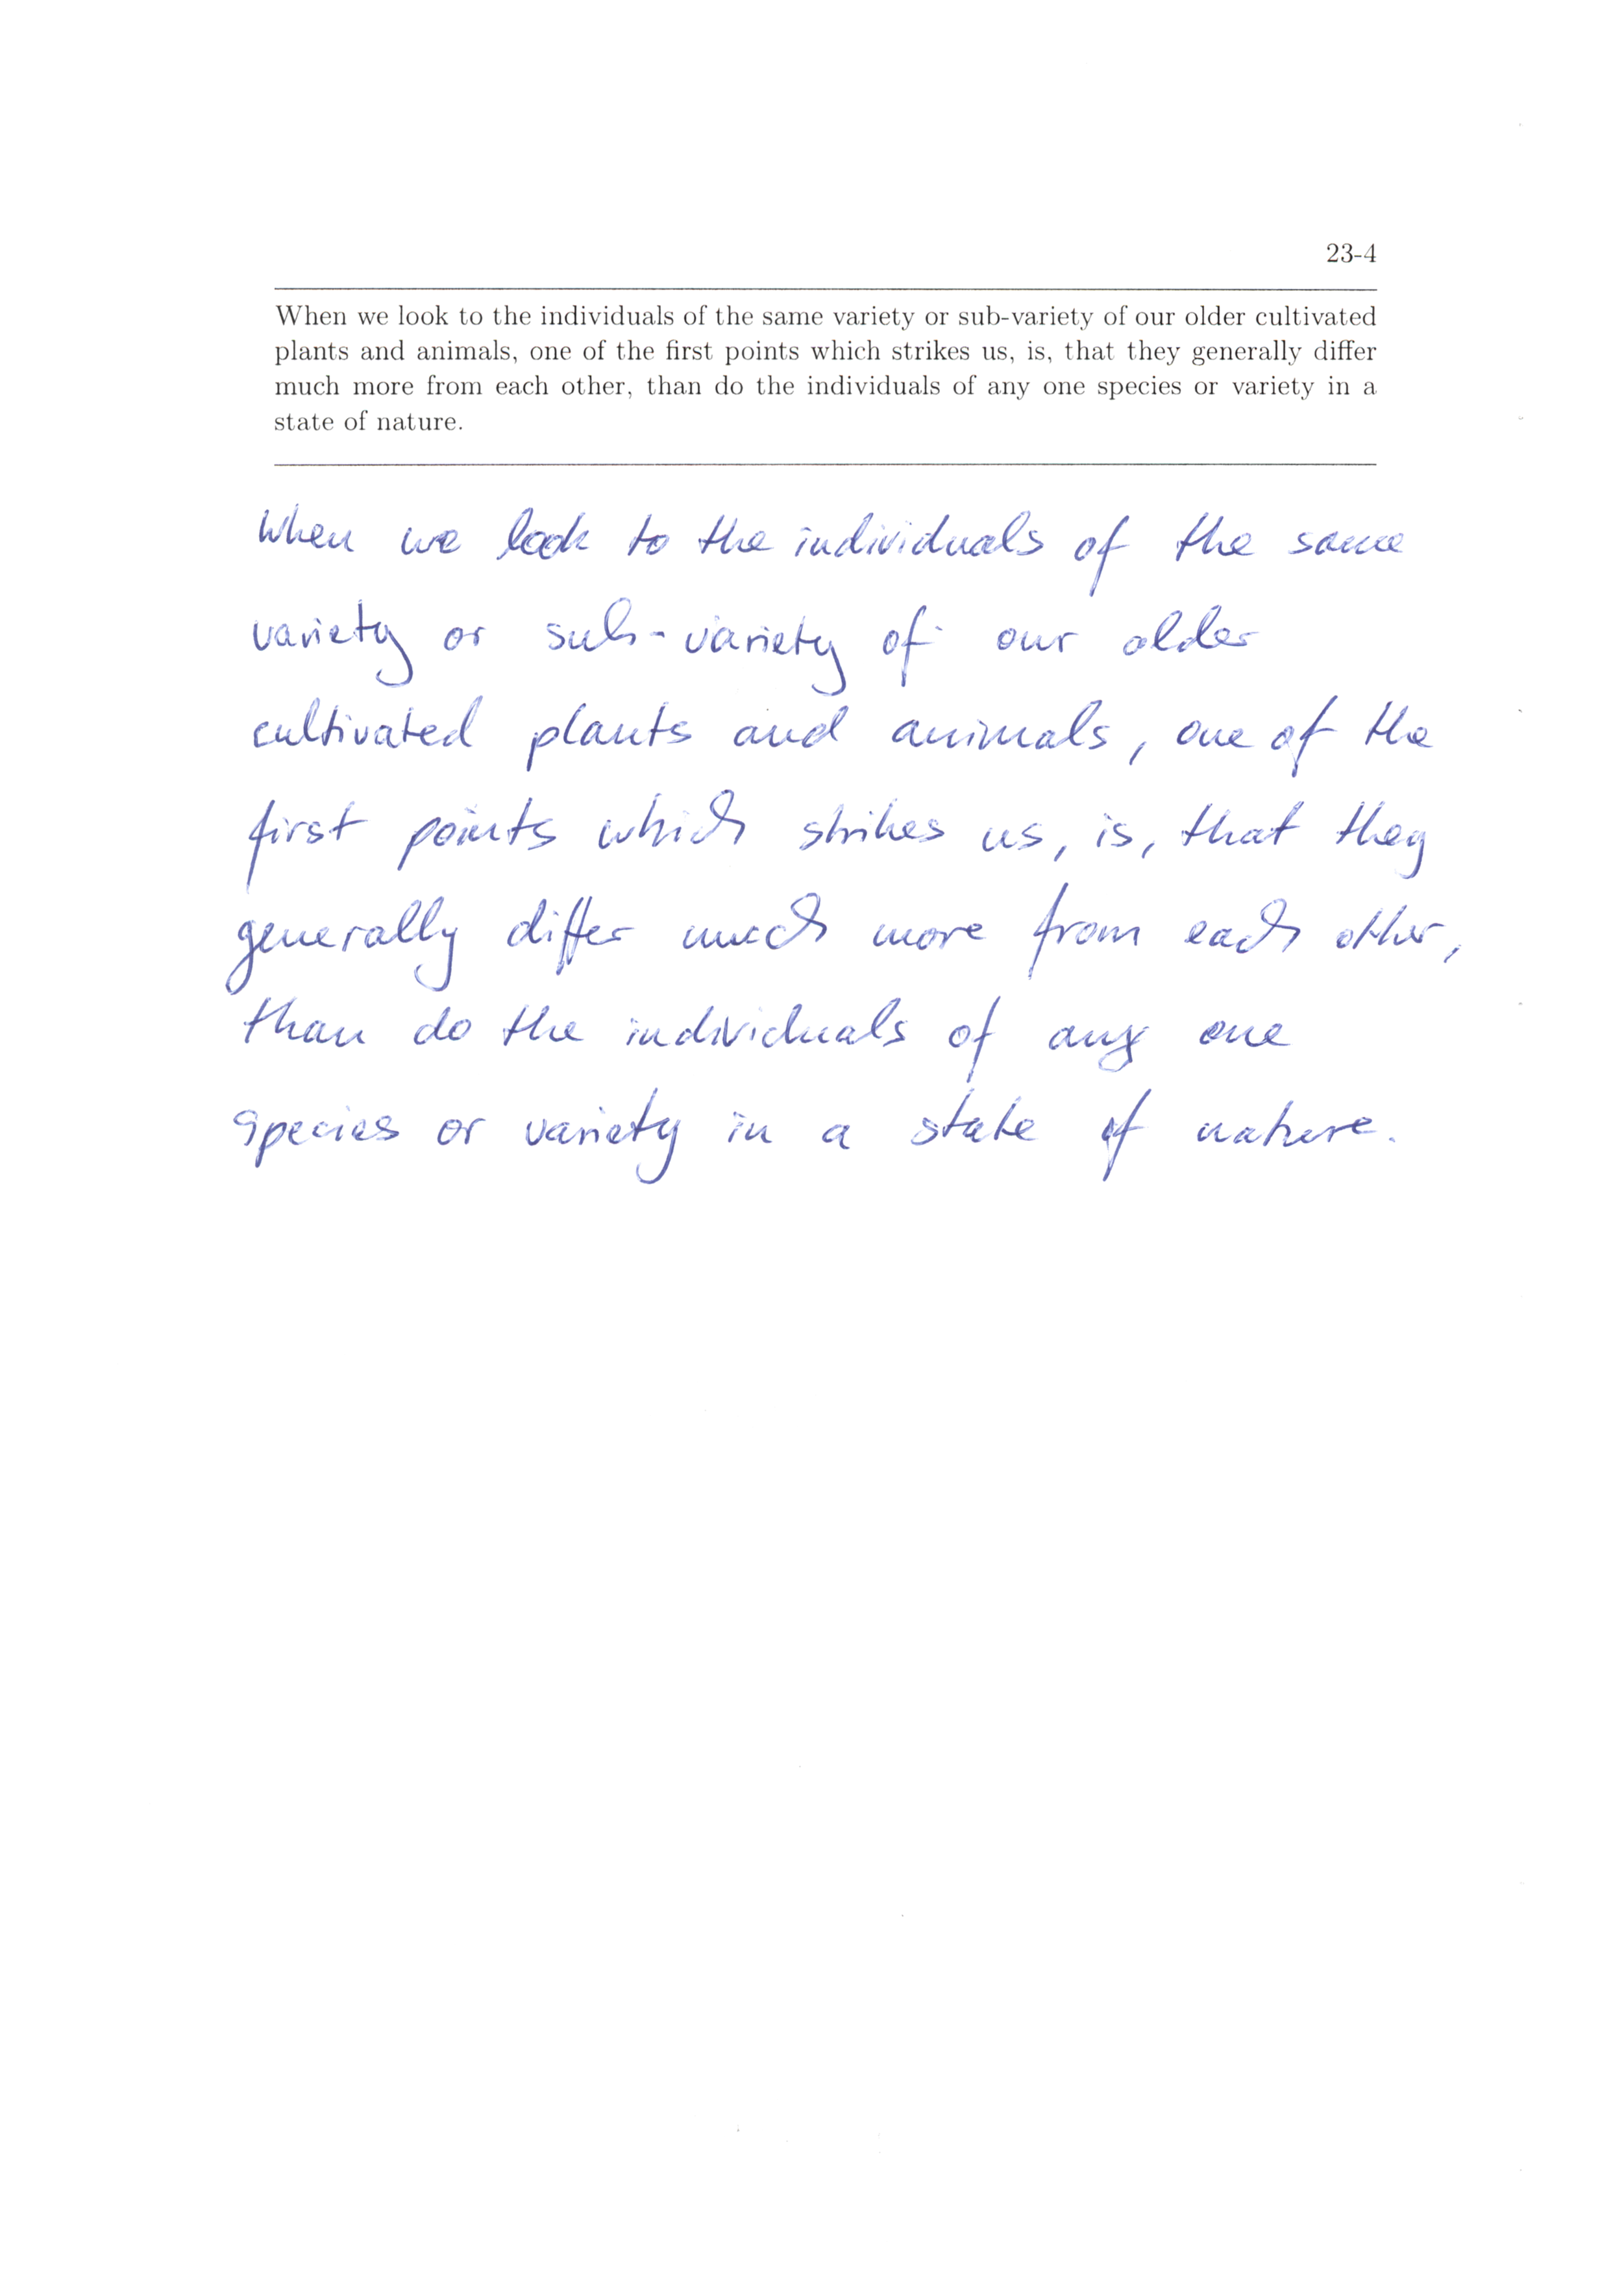 23-4
When we look to the individuals of the same variety or sub-variety of our older cultivated
plants and animals, one of the first points which strikes us, is, that they generally differ
much more from each other, than do the individuals of any one species or variety in a
state of nature.
When we look to the individuals of the same
variety or sub-variety of our older
cultivated plants and animals, one of the
first points which strikes us, is, that they
generally differ much more from each other,
than do the individuals of any one
species or variety in a state of nature.